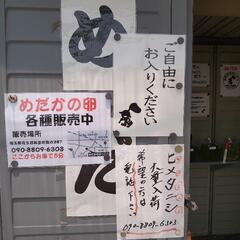 め
だ
ご自由に
お入りください
めだかの卵
各種販売中
販売場所
090-8809-6303
ここからお車で5分
ヒメダニシ
大量入荷
希望の方は
電話下さい
090-8809-6303